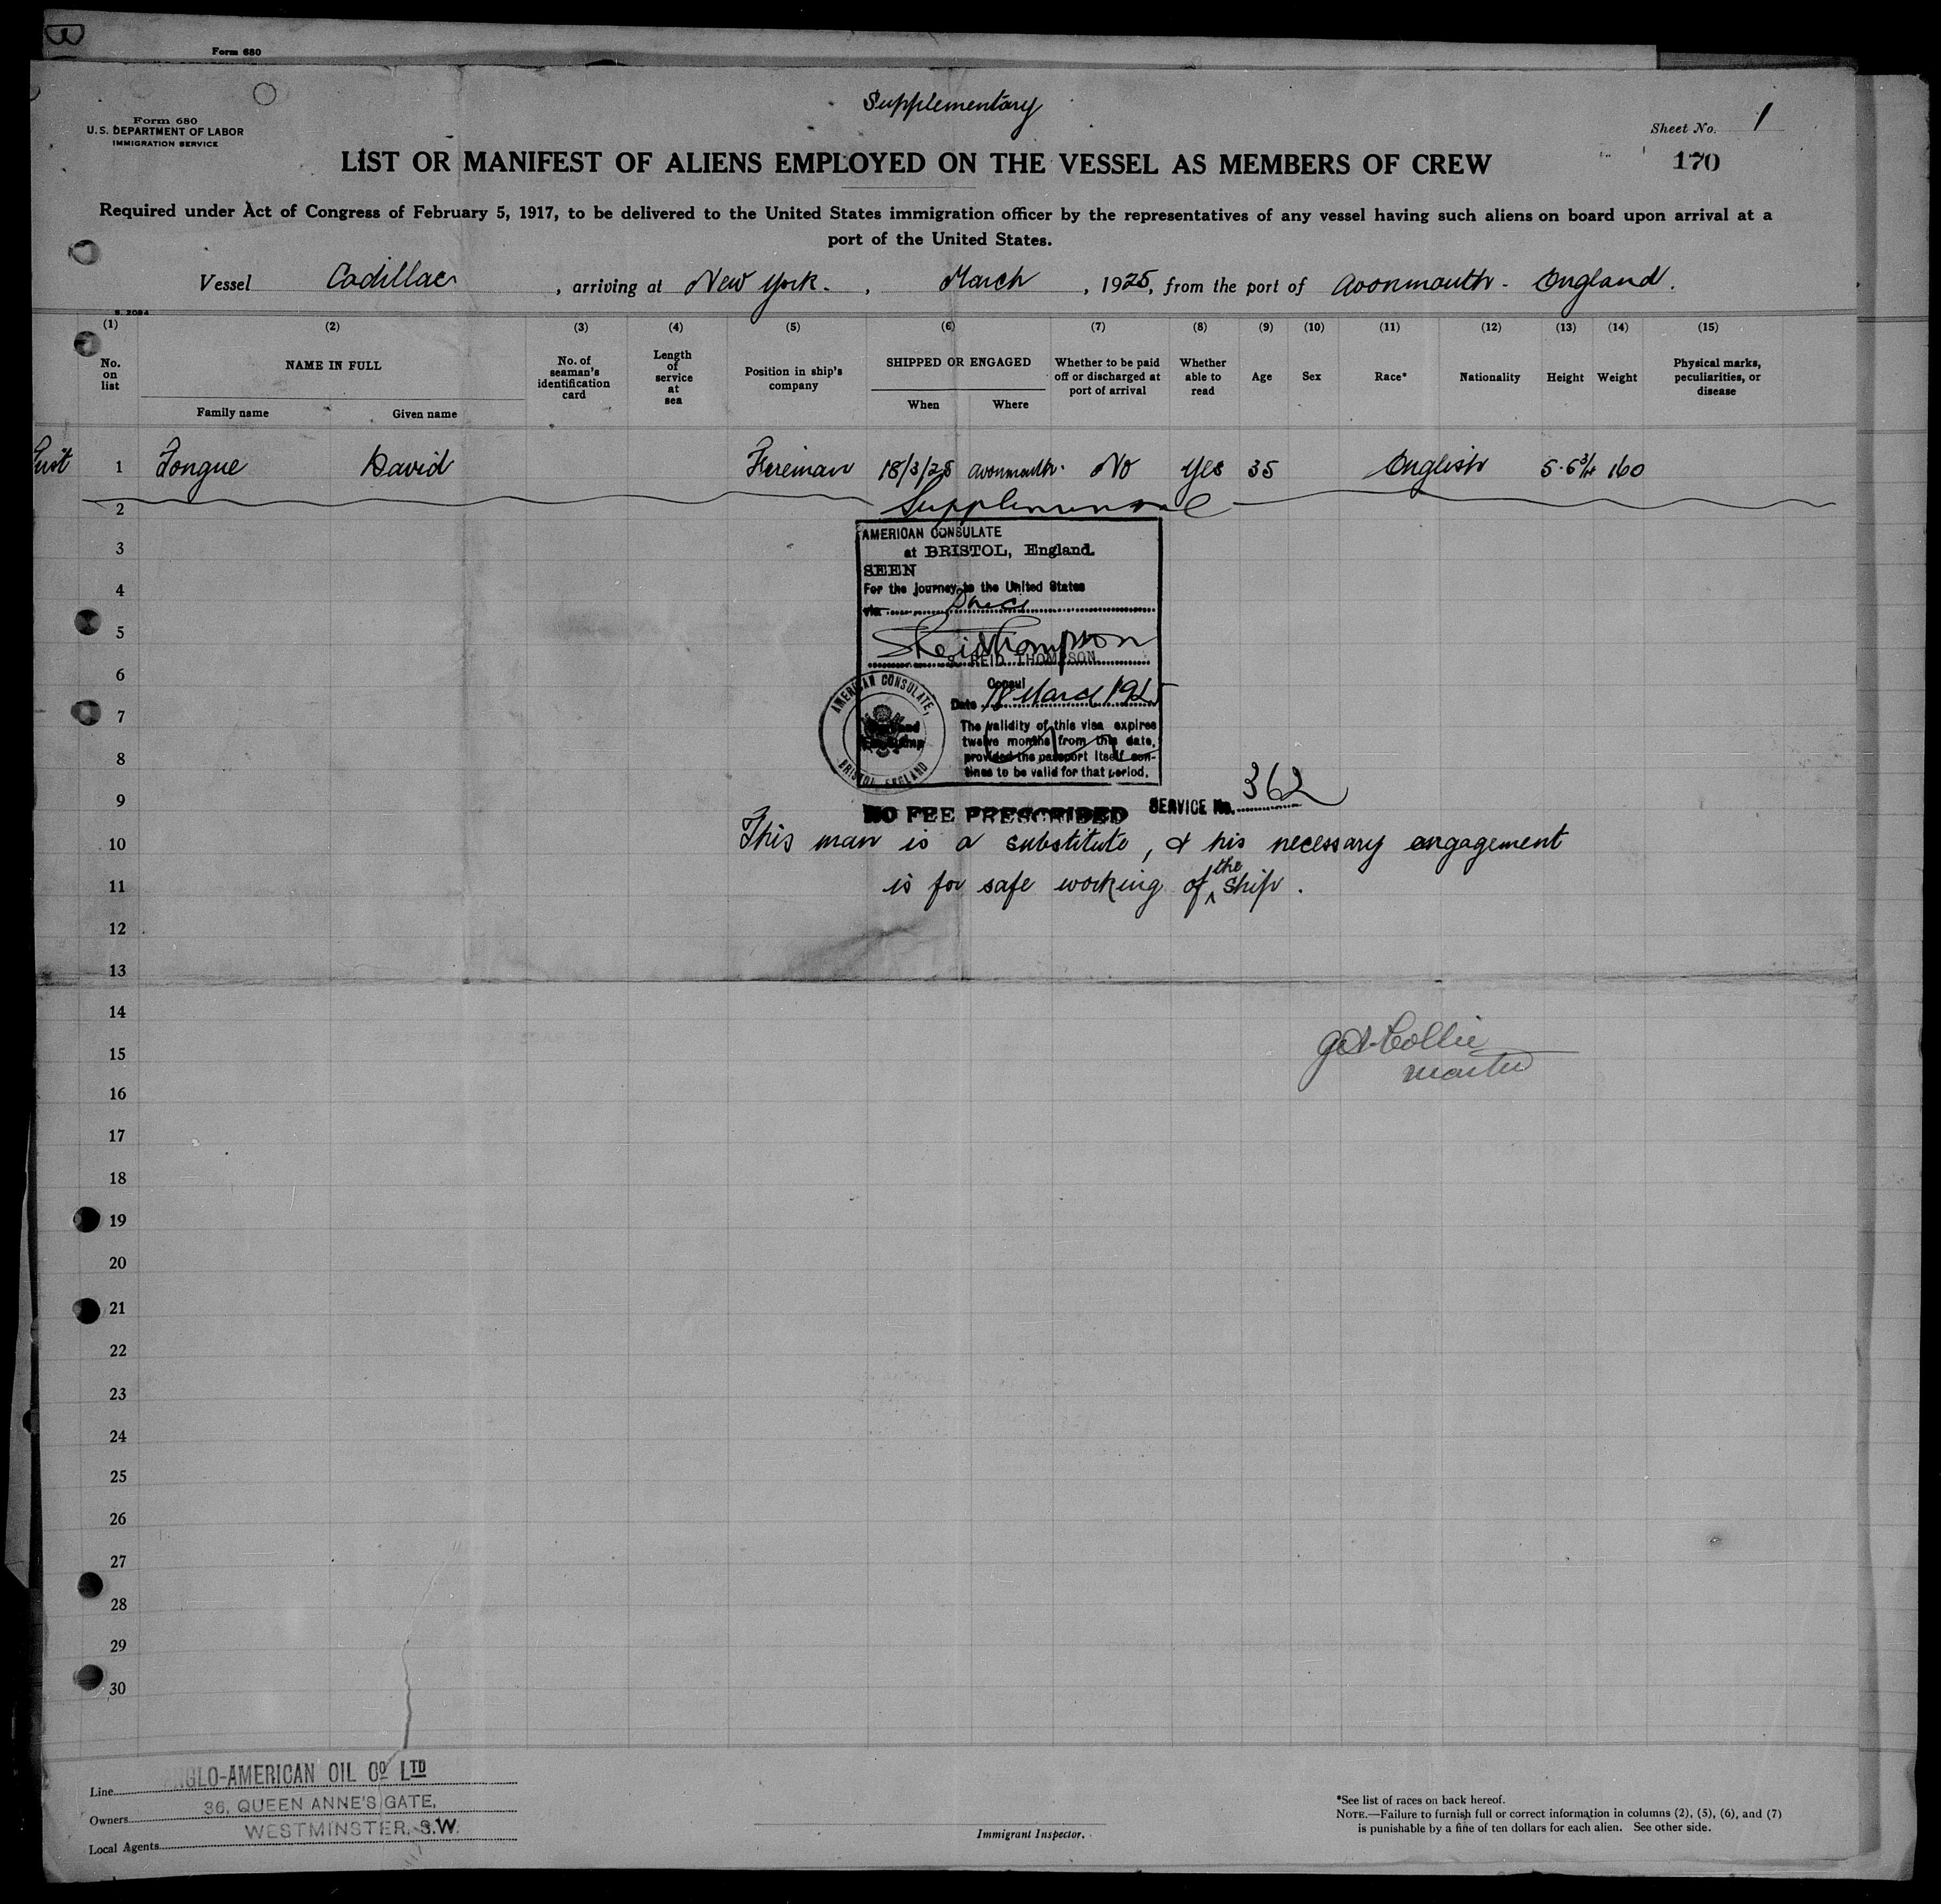 Form 680
Supplementary
Form 680
U. S. DEPARTMENT OF LABOR
IMMIGRATION SERVICE
Sheet No. 1
LIST OR MANIFEST OF ALIENS EMPLOYED ON THE VESSEL AS MEMBERS OF CREW
170
Required under Act of Congress of February 5, 1917, to be delivered to the United States immigration officer by the representatives of any vessel having such aliens on board upon arrival at a
port of the United States.
Vessel Cadillac, arriving at New York., March, 1925, from the port of Avonmouth - England.
(1) (2) (3) (4) (5) (6) (7) (8) (9) (10) (11) (12) (13) (14) (15)
No. on list
NAME IN FULL
Family name Given name
No. of seaman's identification card
Length of service at sea
Position in ship's company
SHIPPED OR ENGAGED
When Where
Whether to be paid off or discharged at port of arrival
Whether able to read
Age
Sex
Race*
Nationality
Height
Weight
Physical marks, peculiarities, or disease
1 Tongue David Fireman 18/3/25 Avonmouth. No Yes 35 English 5.6 3/4 160
2
Supplemental
AMERICAN CONSULATE
3
at BRISTOL, England.
SEEN
4
For the journey to the United States
via
5
S. REID THOMPSON
6
Consul
Date 18 March 1925
7
AMERICAN CONSULATE,
BRISTOL, ENGLAND
The validity of this visa expires
twelve months from this date,
provided the passport itself con-
tinues to be valid for that period.
8
9
NO FEE PRESCRIBED SERVICE No. 362
10
This man is a substitute, & his necessary engagement
11
is for safe working of the ship.
12
13
14
15
Collie
Master
16
17
18
19
20
21
22
23
24
25
26
27
28
29
30
Line ANGLO-AMERICAN OIL CO. LTD
Owners 36, QUEEN ANNE'S GATE,
Local Agents WESTMINSTER, S.W.
Immigrant Inspector.
*See list of races on back hereof.
NOTE.—Failure to furnish full or correct information in columns (2), (5), (6), and (7)
is punishable by a fine of ten dollars for each alien. See other side.